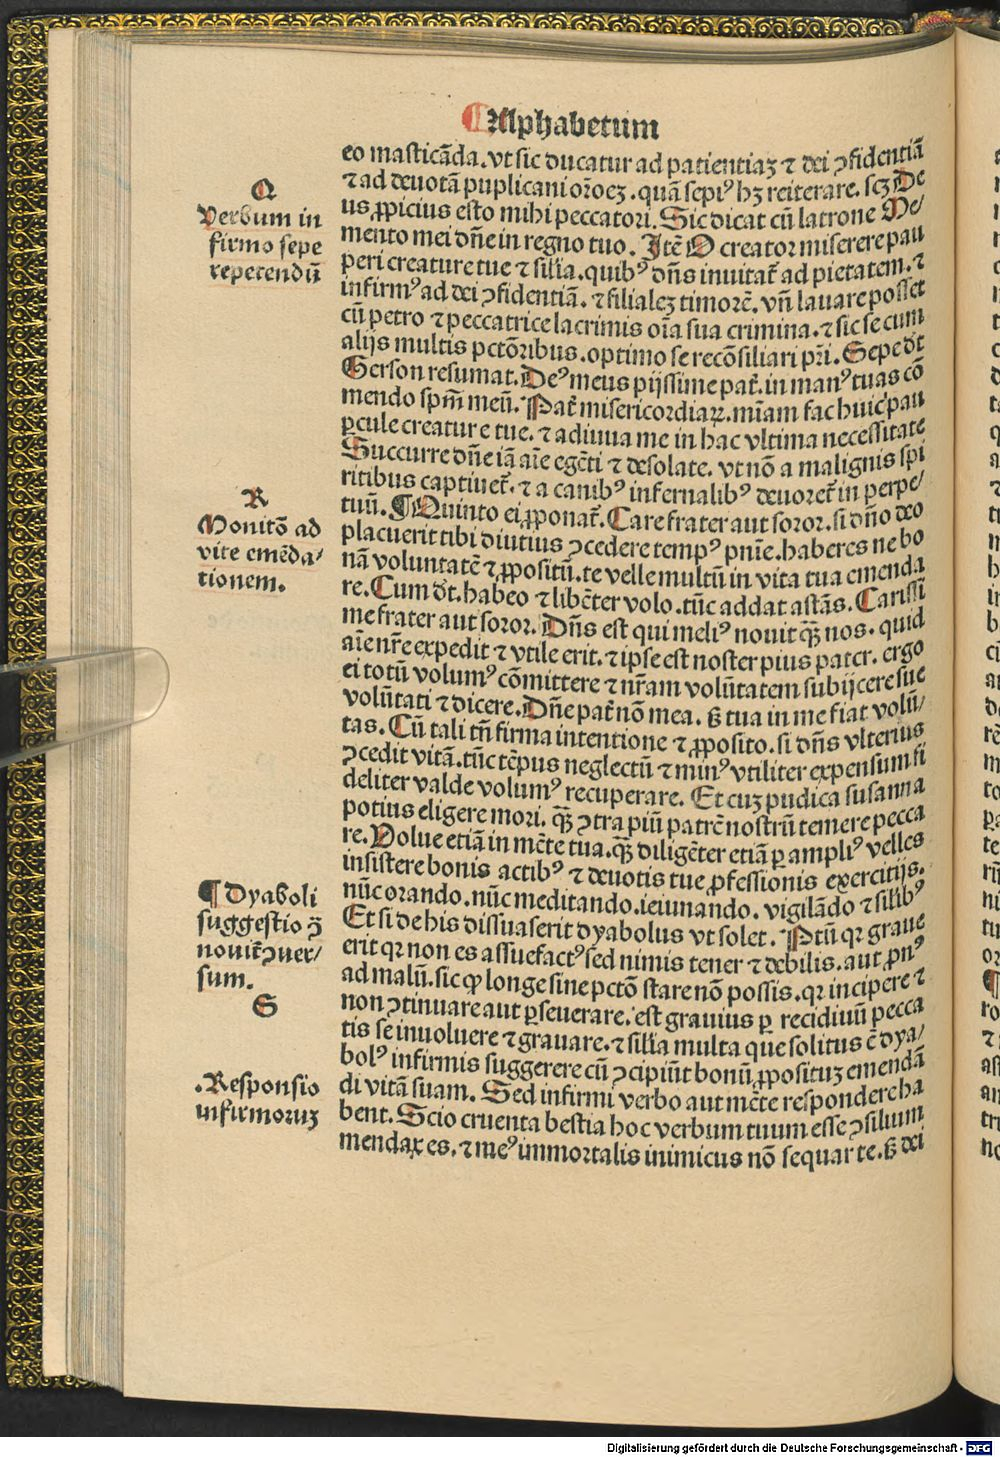 ¶Alphabetum
eo masticãda.vt sic ducatur ad patientiaʒ ⁊ dei ꝯfidentiã
⁊ ad deuotã puplicani or̃oeʒ.quã sepiꝰ hʒ reiterare.scʒ De
us ꝓpicius esto mihi peccatori.Sic dicat cũ latrone Me/
mento mei dñe in regno tuo. Itẽ O creator miserere pau
peri creature tue ⁊ silia.quibꝰ dñs inuitat̃ ad pietatem.⁊
infirmꝰ ad dei ꝯfidentiã.⁊ filialeʒ timorẽ.vñ lauare posset
cũ petro ⁊ peccatrice lacrimis oĩa sua crimina.⁊ sic se cum
alijs multis pctõribus.optimo se recõsiliari pr̃i.Sepe dt̃
Gerson resumat.Deꝰ meus pijssime pat̃.in manꝰ tuas cõ
mendo spm̃ meũ.Pat̃ misericordiaꝝ.miam fac huic pau
ꝑcule creature tue.⁊ adiuua me in hac vltima necessitate
Succurre dñe iã aĩe egẽti ⁊ desolate.vt nõ a malignis spi
ritibus captiuet̃.⁊ a canibꝰ infernalibꝰ deuoret̃ in perpe/
tuũ.¶Quinto ei ꝓponat̃.Care frater aut soror.si dño deo
placuerit tibi diutius ꝯcedere tempꝰ pnĩe.haberes ne bo
nã voluntatẽ ⁊ ꝓpositũ.te velle multũ in vita tua emenda
re.Cum dt̃.habeo ⁊ libẽter volo.tũc addat astãs.Carissi
me frater aut soror.Dñs est qui meliꝰ nouit q̃ʒ nos.quid
aĩe nr̃e expedit ⁊ vtile erit.⁊ ipse est noster pius pater.ergo
ei totũ volumꝰ cõmittere ⁊ nr̃am volũtatem subijcere sue
volũtati ⁊ dicere.Dñe pat̃ nõ mea.ß tua in me fiat volũ/
tas.Cũ tali tñ firma intentione ⁊ ꝓposito.si dñs vlterius
ꝯcedit vitã.tũc tẽpus neglectũ ⁊ minꝰ vtiliter expensum fi
deliter valde volumꝰ recuperare. Et cuʒ pudica susanna
potius eligere mori.q̃ʒ ꝯtra piũ patrẽ nostrũ temere pecca
re.Volue etiã in mẽte tua.q̃ʒ diligẽter etiã ꝑ ampliꝰ velles
insistere bonis actibꝰ ⁊ deuotis tue ꝓfessionis exercitijs.
nũc orando.nũc meditando.ieiunando. vigilãdo ⁊ silibꝰ
Et si de his dissuaserit dyabolus vt solet. Ptũ qꝛ graue
erit qꝛ non es assuefactꝰ sed nimis tener ⁊ debilis.aut ꝓnꝰ
ad malũ.sic ꝙ longe sine pctõ stare nõ possis.qꝛ incipere ⁊
non ꝯtinuare aut ꝑseuerare.est grauius ꝑ recidiuũ pecca
tis se inuoluere ⁊ grauare.⁊ silia multa que solitus ẽ dya/
bolꝰ infirmis suggerere cũ ꝯcipiũt bonũ ꝓpositũʒ emendã
di vitã suam. Sed infirmi verbo aut mẽte respondere ha
bent.Scio cruenta bestia hoc verbum tuum esse ꝯsilium
mendax es.⁊ meꝰ immortalis inimicus nõ sequar te.ß dei
Q
Verbum in
firmo sepe
repetendũ
R
Monitõ ad
vite emẽda/
tionem.
¶Dyaboli
suggestio ꝯ̃
nouit̃ ꝯuer/
sum.
S
.Responsio
infirmoruʒ
Digitalisierung gefördert durch die Deutsche Forschungsgemeinschaft - DFG